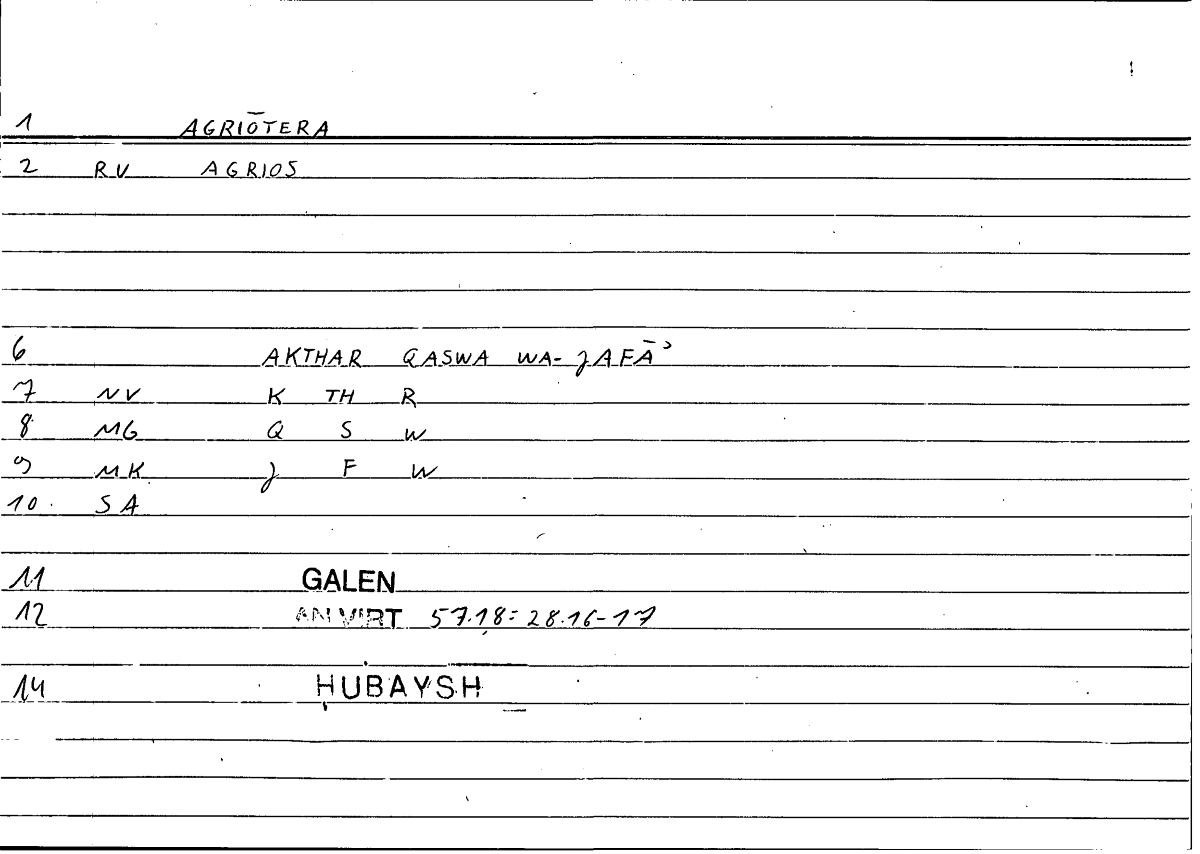 1 AGRIŌTERA
2 RV AGRIOS
6 AKTHAR QASWA WA-JAFĀʾ
7 NV K TH R
8 MG Q S W
9 MK J F W
10. SA
11 GALEN
12 AN VIRT 57.18=28.16-17
14 HUBAYSH